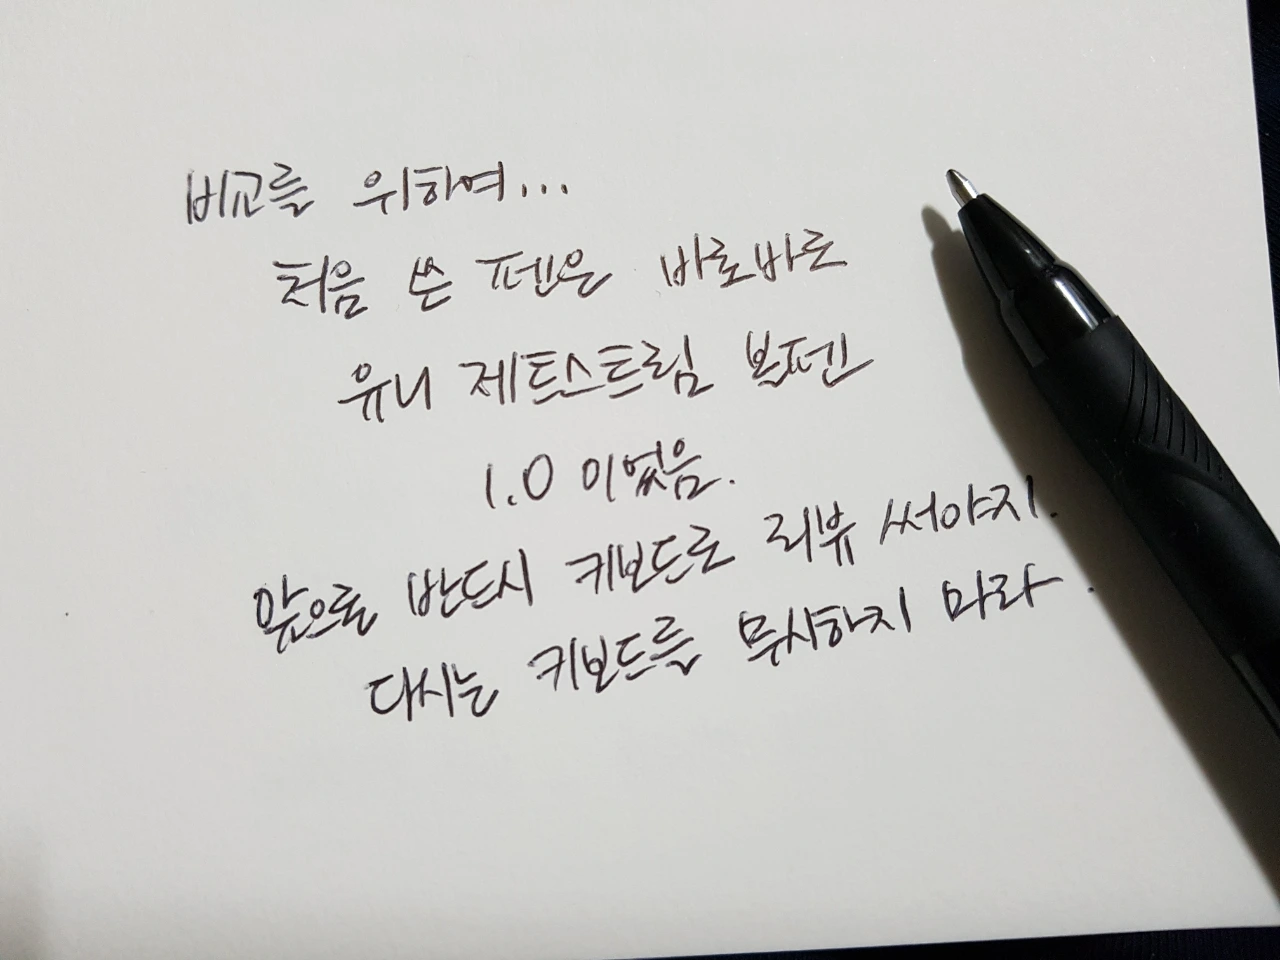 비교를 위하여...
처음 쓴 펜은 바로바로
유니 제트스트림 볼펜
1.0 이었음.
앞으로 반드시 키보드로 리뷰 써야지.
다시는 키보드를 무시하지 마라.